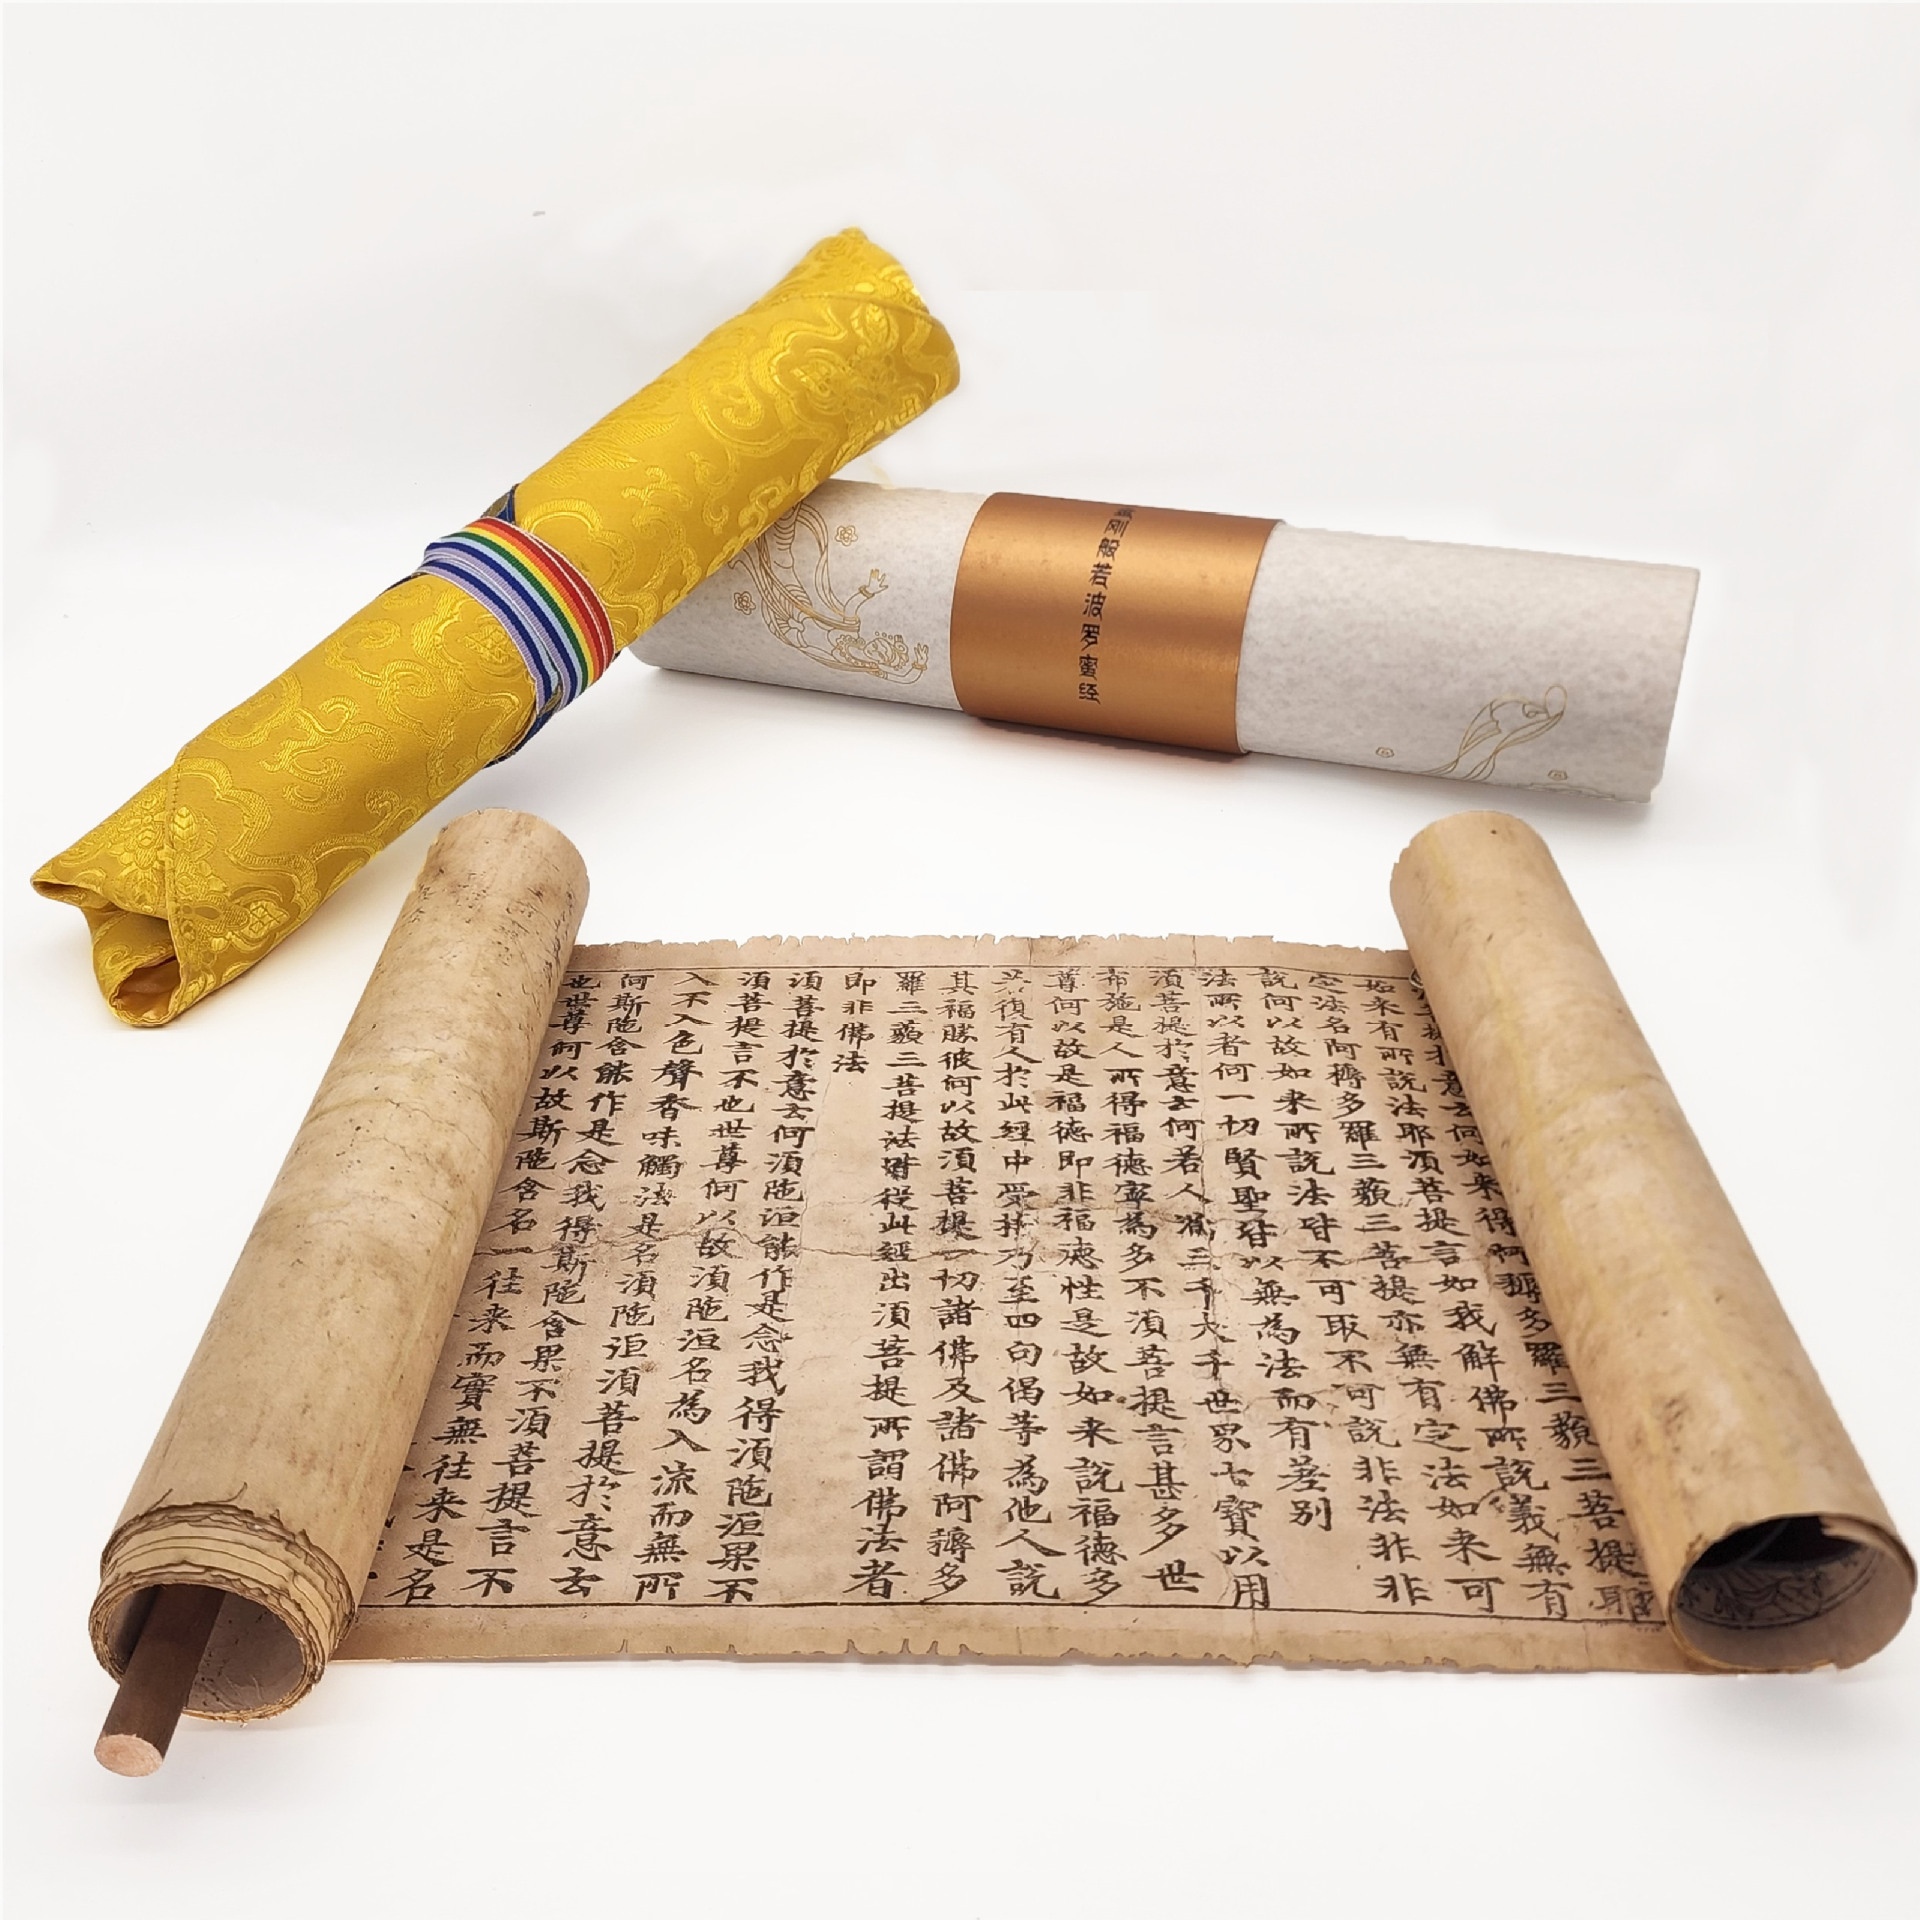 金刚般若波罗蜜经
提於意云何如来得阿耨多羅三藐三菩提耶
如来有所說法耶須菩提言如我解佛所說義無有
定法名阿耨多羅三藐三菩提亦無有定法如来可
說何以故如来所說法皆不可取不可說非法非非
法所以者何一切賢聖皆以無為法而有差别
須菩提於意云何若人滿三千大千世界七寶以用
布施是人所得福德寧為多不須菩提言甚多世
尊何以故是福德即非福德性是故如来說福德多
若復有人於此經中受持乃至四句偈等為他人說
其福勝彼何以故須菩提一切諸佛及諸佛阿耨多
羅三藐三菩提法皆從此經出須菩提所謂佛法者
即非佛法
須菩提於意云何須陁洹能作是念我得須陁洹果不
須菩提言不也世尊何以故須陁洹名為入流而無所
入不入色聲香味觸法是名須陁洹須菩提於意云
何斯陁含能作是念我得斯陁含果不須菩提言不
也世尊何以故斯陁含名一往来而實無往来是名